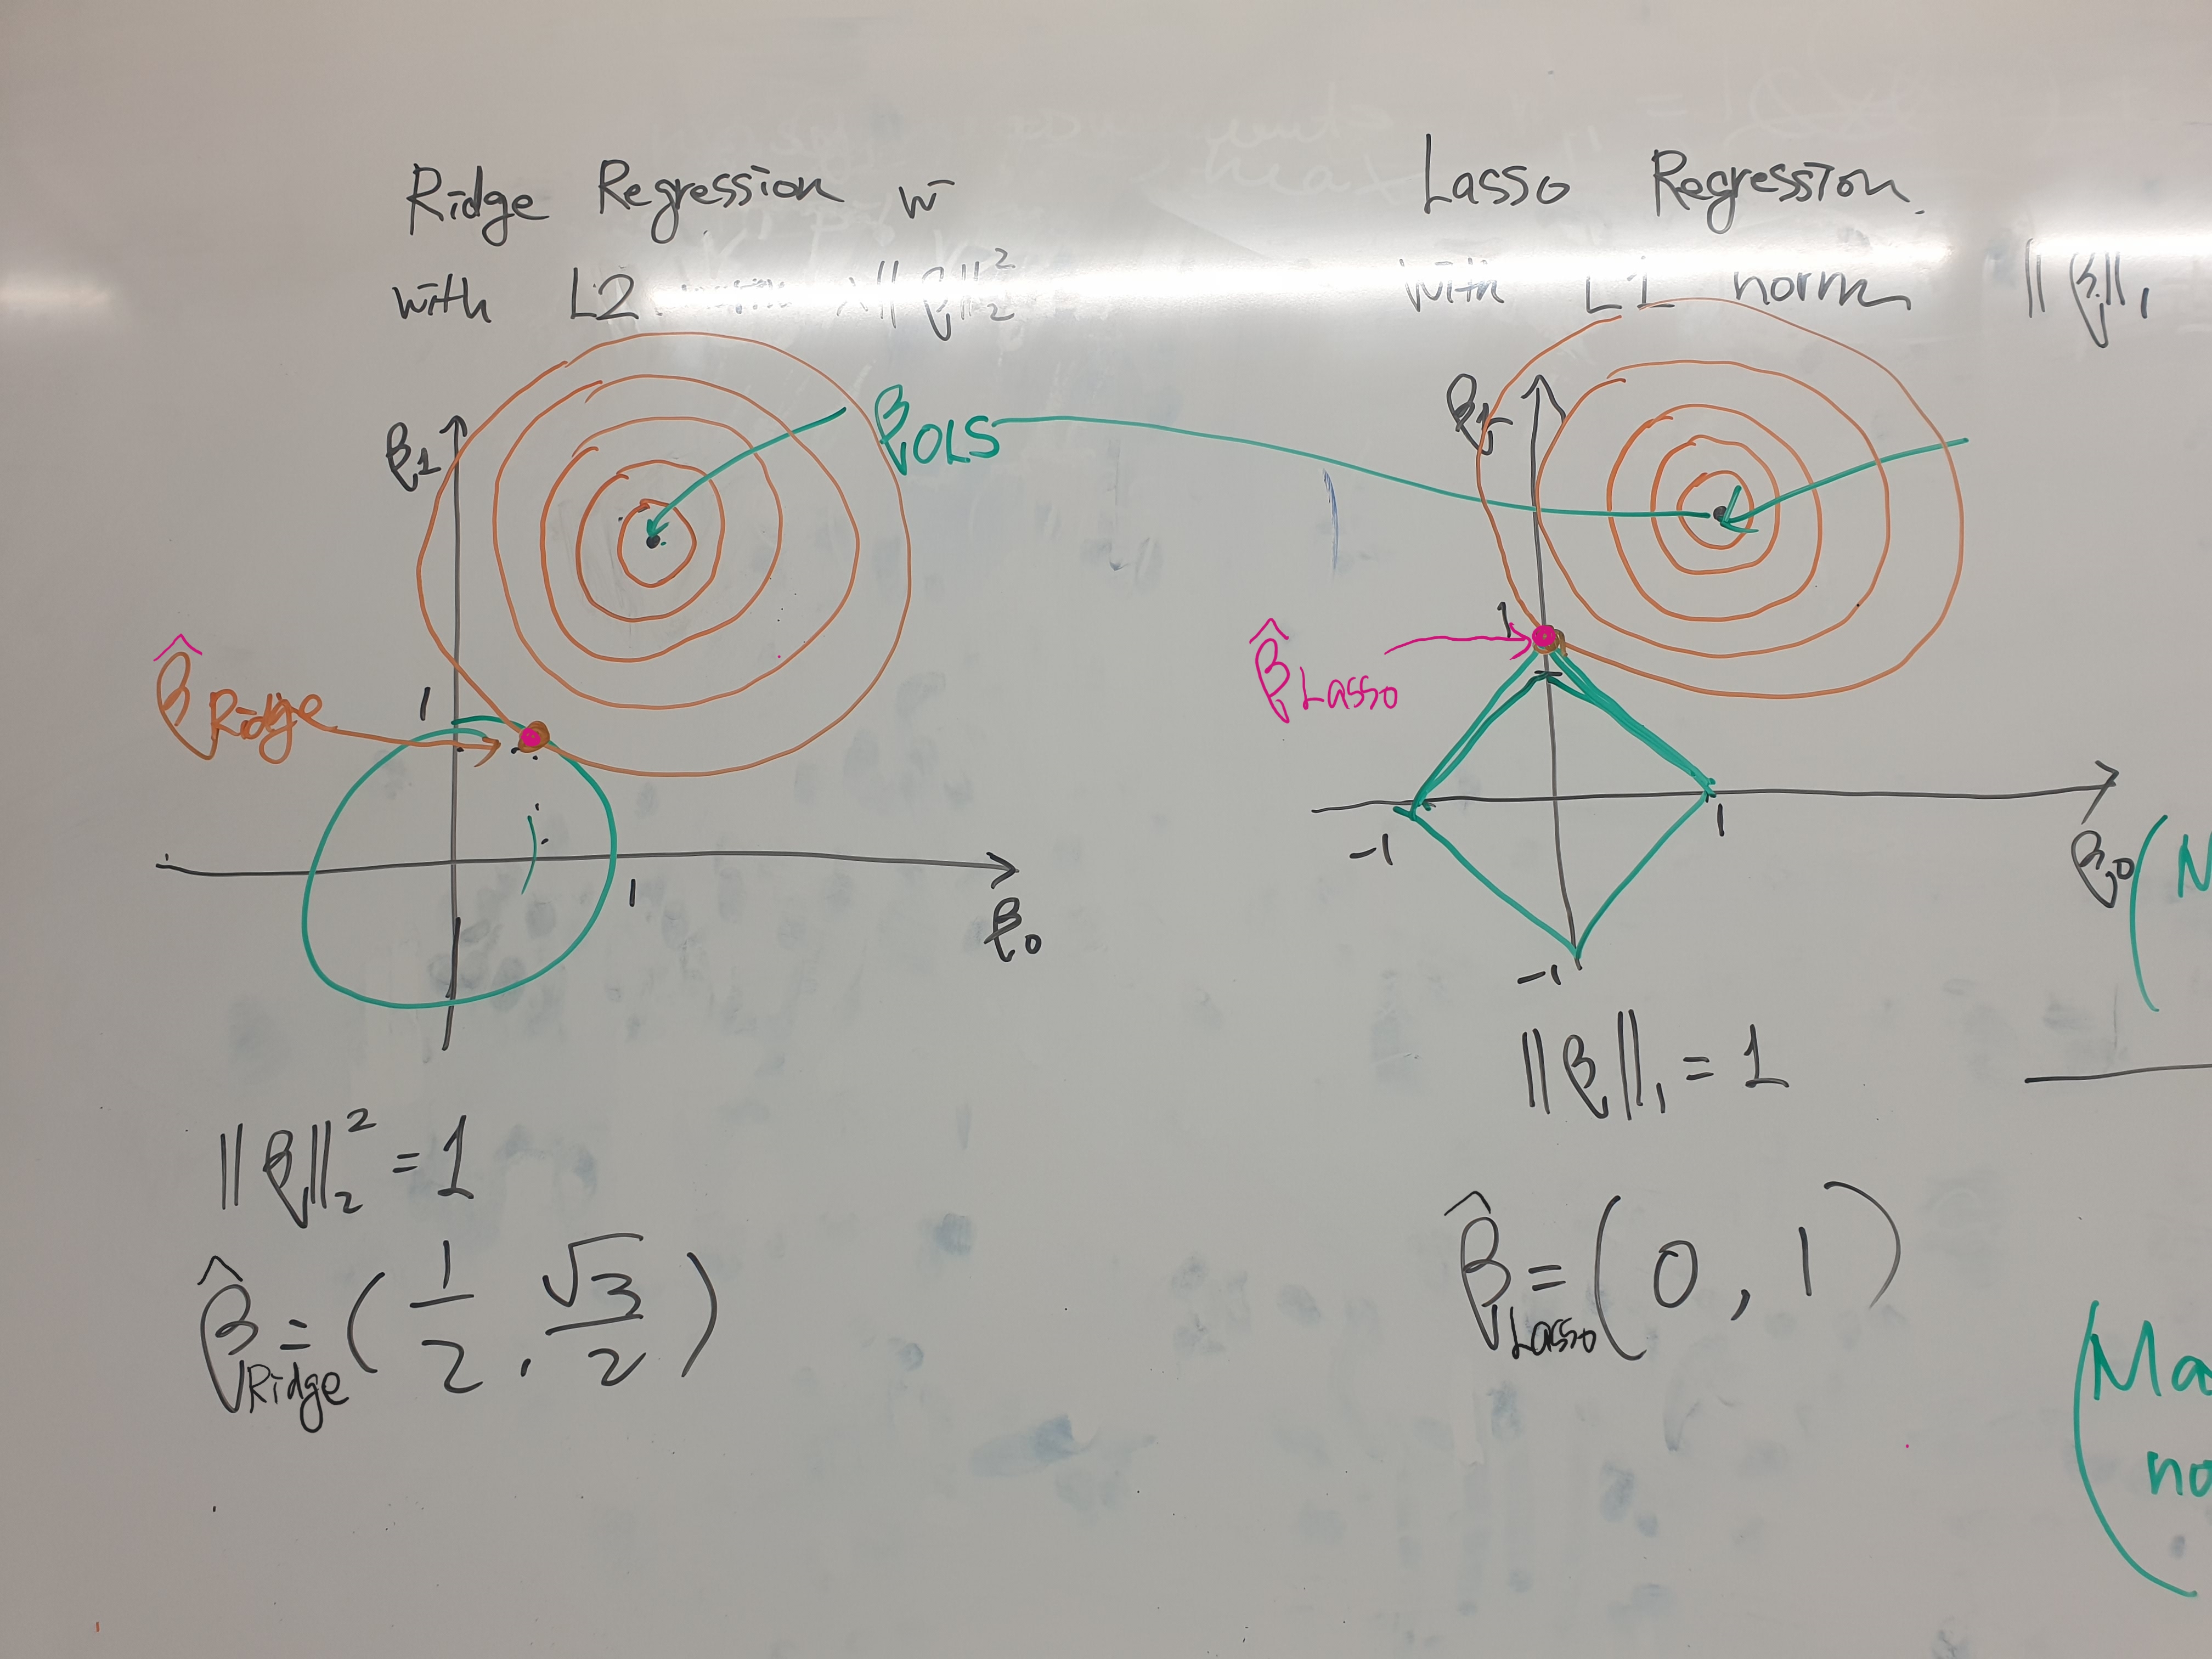 Ridge Regression w
with L2 λ||β||₂²
β₁
β OLS
β̂ Ridge
1
1
β₀
||β||₂² = 1
β̂ Ridge = (1/2, √3/2)
Lasso Regression
with L1 norm ||β||₁
β₁
1
β̂ Lasso
-1
1
β₀
-1
||β||₁ = 1
β̂ Lasso = (0, 1)
(N
(Ma
no